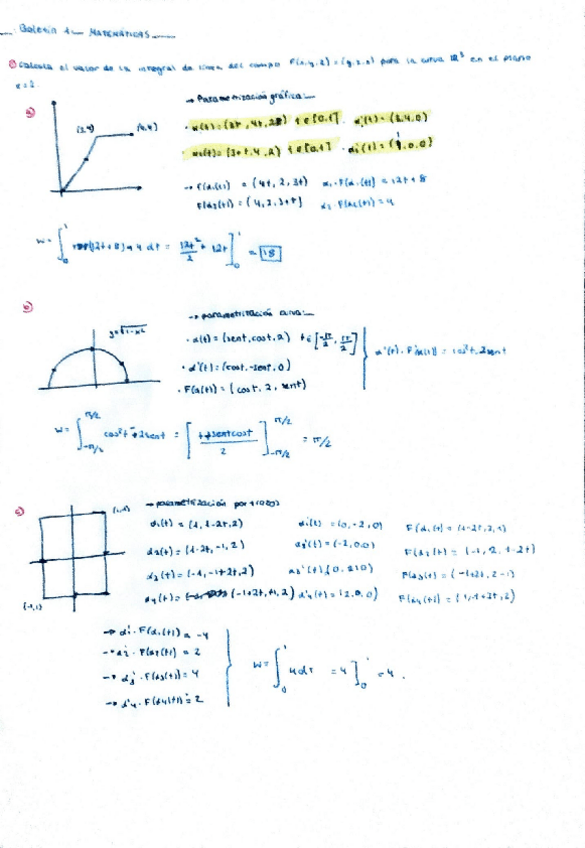 Boletín 1 - MATEMÁTICAS
① Calcula el valor de la integral de línea del campo F(x,y,z)=(y,z,x) para la curva en el plano
z=2.
a)
(3,4) (4,4)
→ Parametrización gráfica:
· α(t)=(3t, 4t, 2) t∈[0,1] α'(t)=(3,4,0)
· α₂(t)=(3+t, 4, 2) t∈[0,1] · α₂'(t)=(1,0,0)
→ F(α₁(t)) = (4t, 2, 3t) α₁·F(α₁(t)) = 12t+8
F(α₂(t)) = (4, 2, 3+t) α₂·F(α₂(t)) = 4
W = ∫₀¹ (12t+8)+4 dt = 12t²/2 + 12t ]₀¹ = 18
b)
y=√1-x²
→ parametrización curva:
· α(t)=(sent, cost, 2) t∈[-π/2, π/2]
· α'(t)=(cost, -sent, 0)
α'(t)·F(α(t)) = cos²t-2sent
· F(α(t))=(cost, 2, sent)
W = ∫ cos²t - 2sent = [t+sentcost / 2] = π/2
c)
→ parametrización por trozos
α₁(t)=(1, 1-2t, 2) α₁'(t)=(0,-2,0) F(α₁(t))=(1-2t, 2, 1)
α₂(t)=(1-2t, -1, 2) α₂'(t)=(-2,0,0) F(α₂(t))=(-1, 2, 1-2t)
α₃(t)=(-1, -1+2t, 2) F(α₃(t))=(-1+2t, 2, -1)
(-1+2t, 1, 2) α'₄(t)=(2,0,0)
→ α₁'·F(α₁(t)) = -4
→ α₂'·F(α₂(t)) = 2
→ α₃'·F(α₃(t)) = 4
→ α'₄·F(α₄(t)) = 2
W = ∫₀¹ 4dt = 4 ]₀¹ = 4.